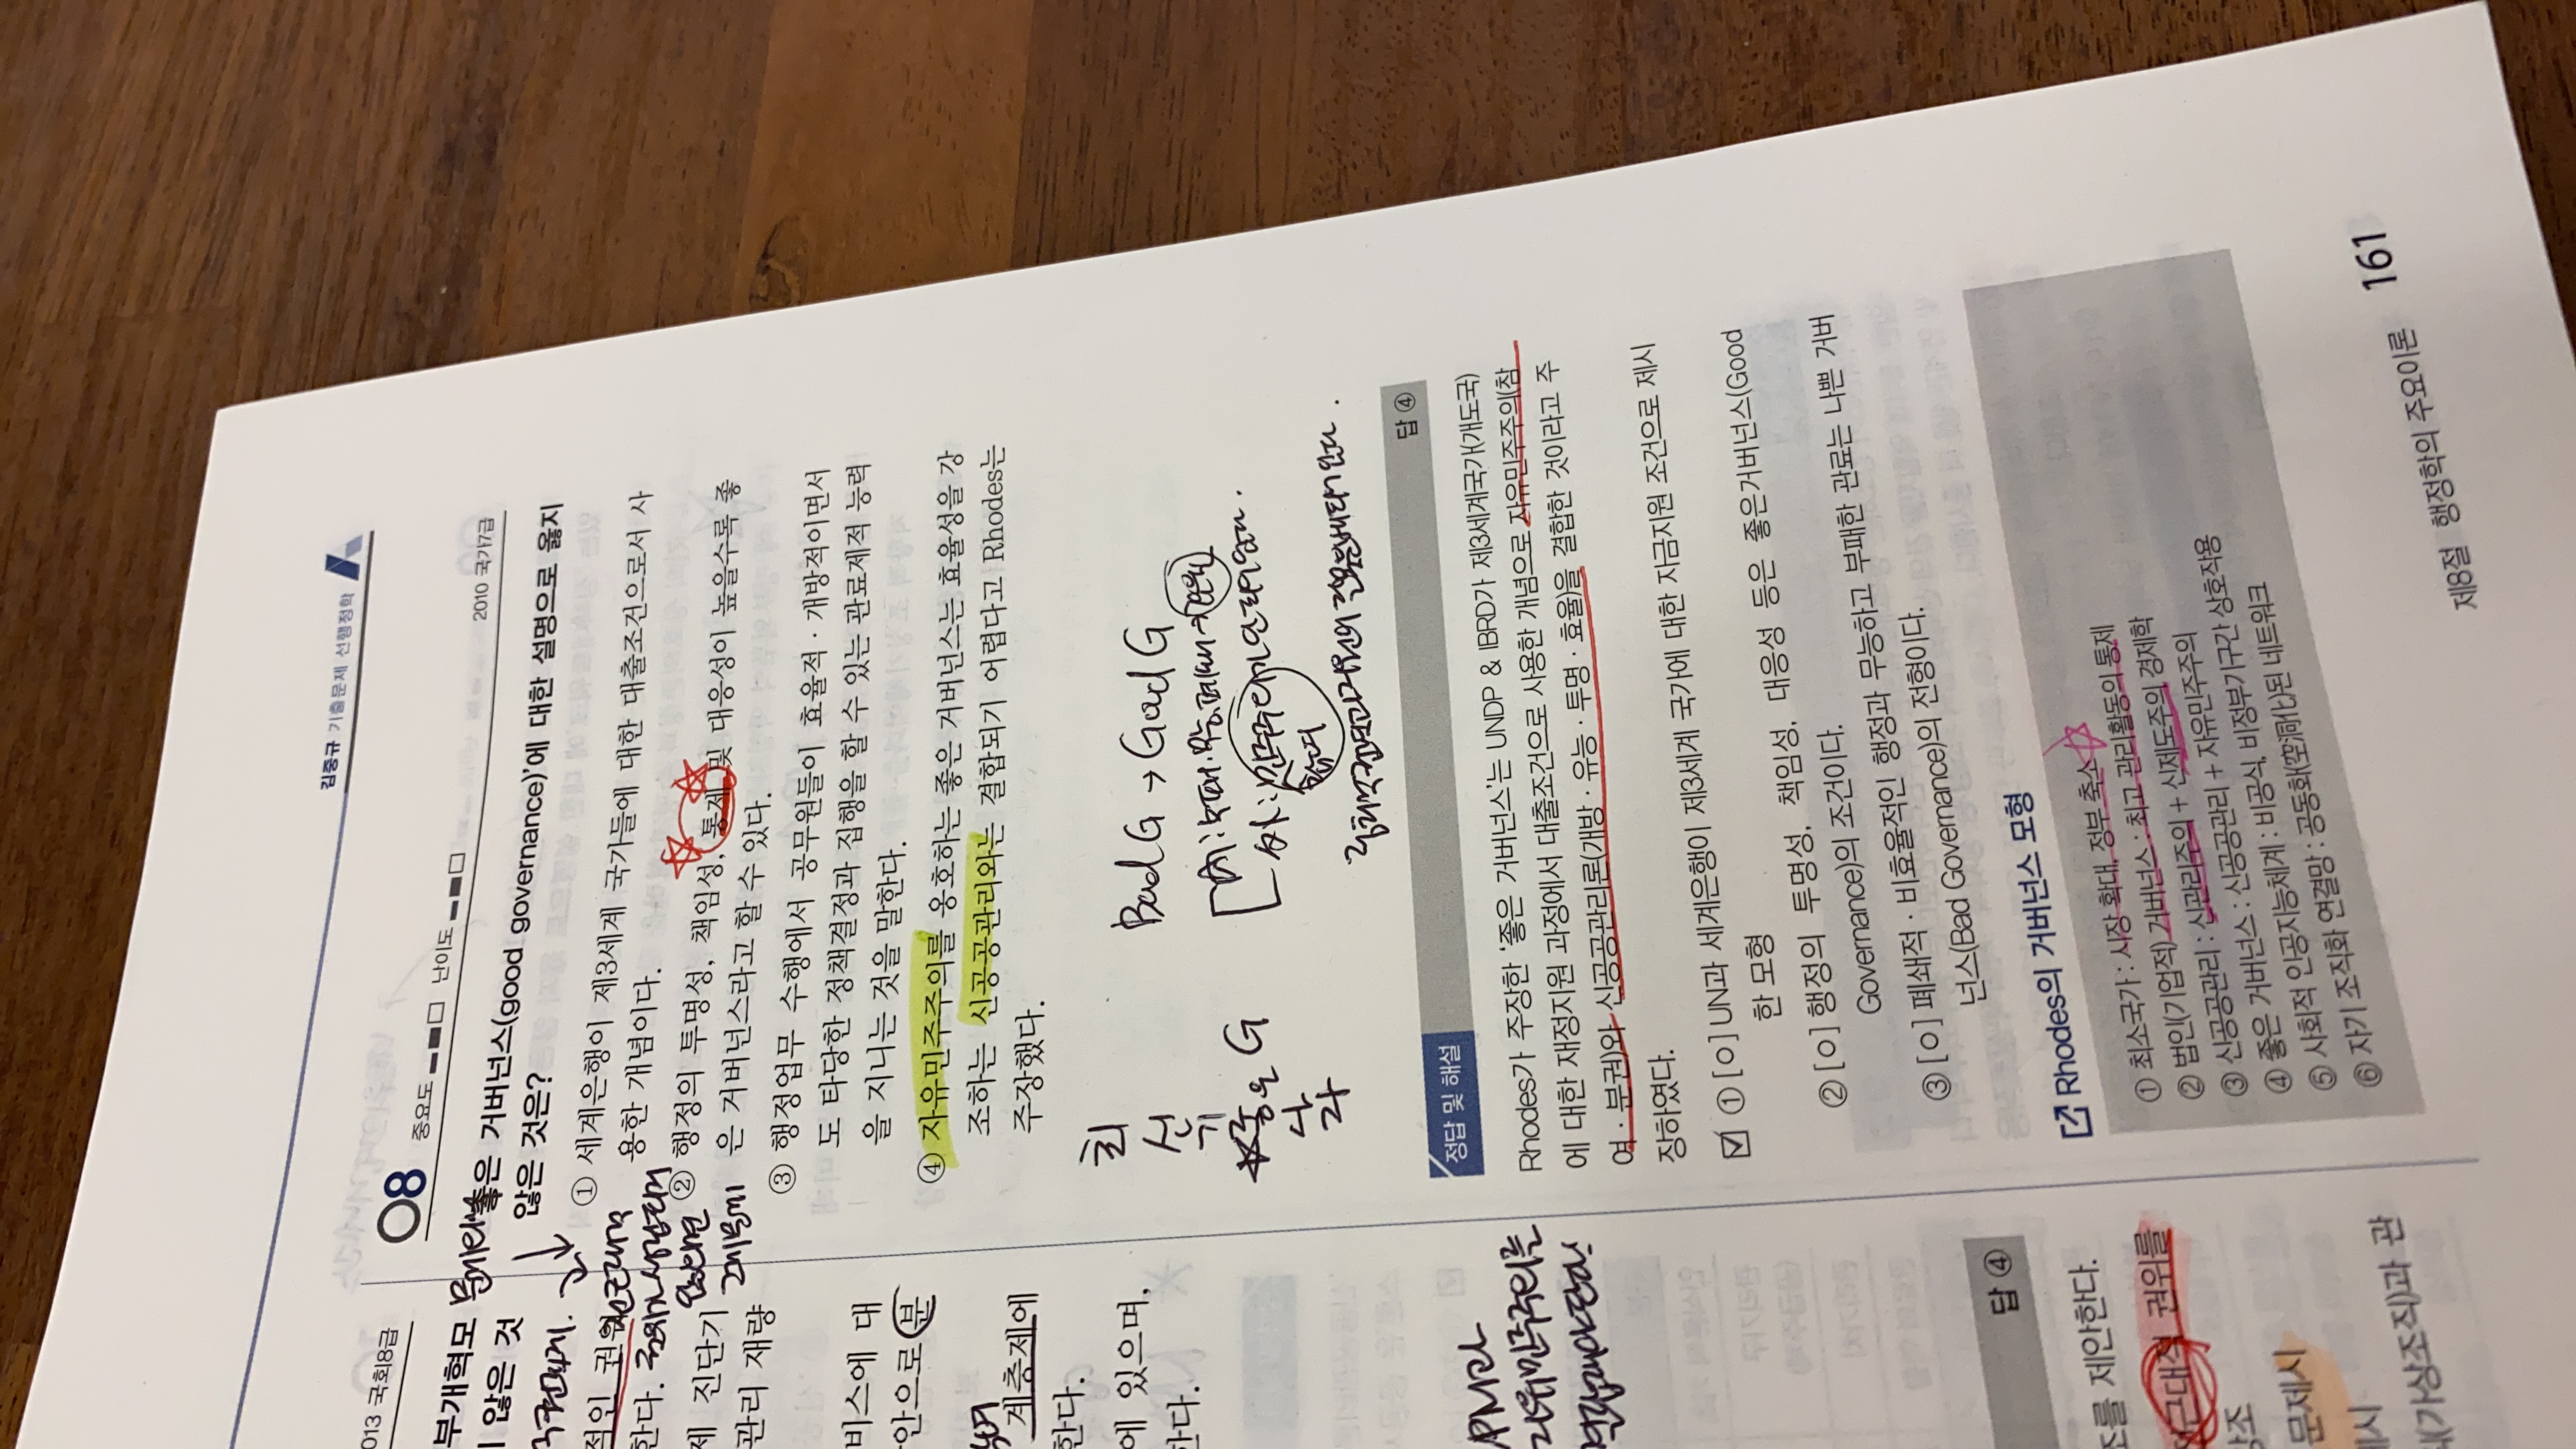 김중규 기출문제 선행정학
08 중요도 난이도 2010 국가7급
좋은 거버넌스(good governance)'에 대한 설명으로 옳지
않은 것은?
① 세계은행이 제3세계 국가들에 대한 대출조건으로서 사
용한 개념이다.
② 행정의 투명성, 책임성, 통제 및 대응성이 높을수록 좋
은 거버넌스라고 할 수 있다.
③ 행정업무 수행에서 공무원들이 효율적·개방적이면서
도 타당한 정책결정과 집행을 할 수 있는 관료제적 능력
을 지니는 것을 말한다.
④ 자유민주주의를 옹호하는 좋은 거버넌스는 효율성을 강
조하는 신공공관리와는 결합되기 어렵다고 Rhodes는
주장했다.
Bad G → Good G
최
신
기
좋은 G
사
자
정답 및 해설 답 ④
Rhodes가 주장한 '좋은 거버넌스'는 UNDP & IBRD가 제3세계국가(개도국)
에 대한 재정지원 과정에서 대출조건으로 사용한 개념으로 자유민주주의(참
여·분권)와 신공공관리론(개방·유능·투명·효율)을 결합한 것이라고 주
장하였다.
① [○] UN과 세계은행이 제3세계 국가에 대한 자금지원 조건으로 제시
한 모형
② [○] 행정의 투명성, 책임성, 대응성 등은 좋은거버넌스(Good
Governance)의 조건이다.
③ [○] 폐쇄적·비효율적인 행정과 무능하고 부패한 관료는 나쁜 거버
넌스(Bad Governance)의 전형이다.
Rhodes의 거버넌스 모형
① 최소국가 : 시장 확대, 정부 축소
② 법인(기업적) 거버넌스 : 최고 관리활동의 통제
③ 신공공관리 : 신관리주의 + 신제도주의 경제학
④ 좋은 거버넌스 : 신공공관리 + 자유민주주의
⑤ 사회적 인공지능체계 : 비공식, 비정부기구간 상호작용
⑥ 자기 조직화 연결망 : 공동화(空洞化)된 네트워크
제8절 행정학의 주요이론 161
013 국회8급
부개혁모
않은 것
적인 권
한다.
제 진단기
관리 재량
비스에 대
안으로 분
계층제에
한다.
에 있으며,
한다.
답 ④
조를 제안한다.
근대적 권위를
강조
문제시
시
(가상조직)과 관